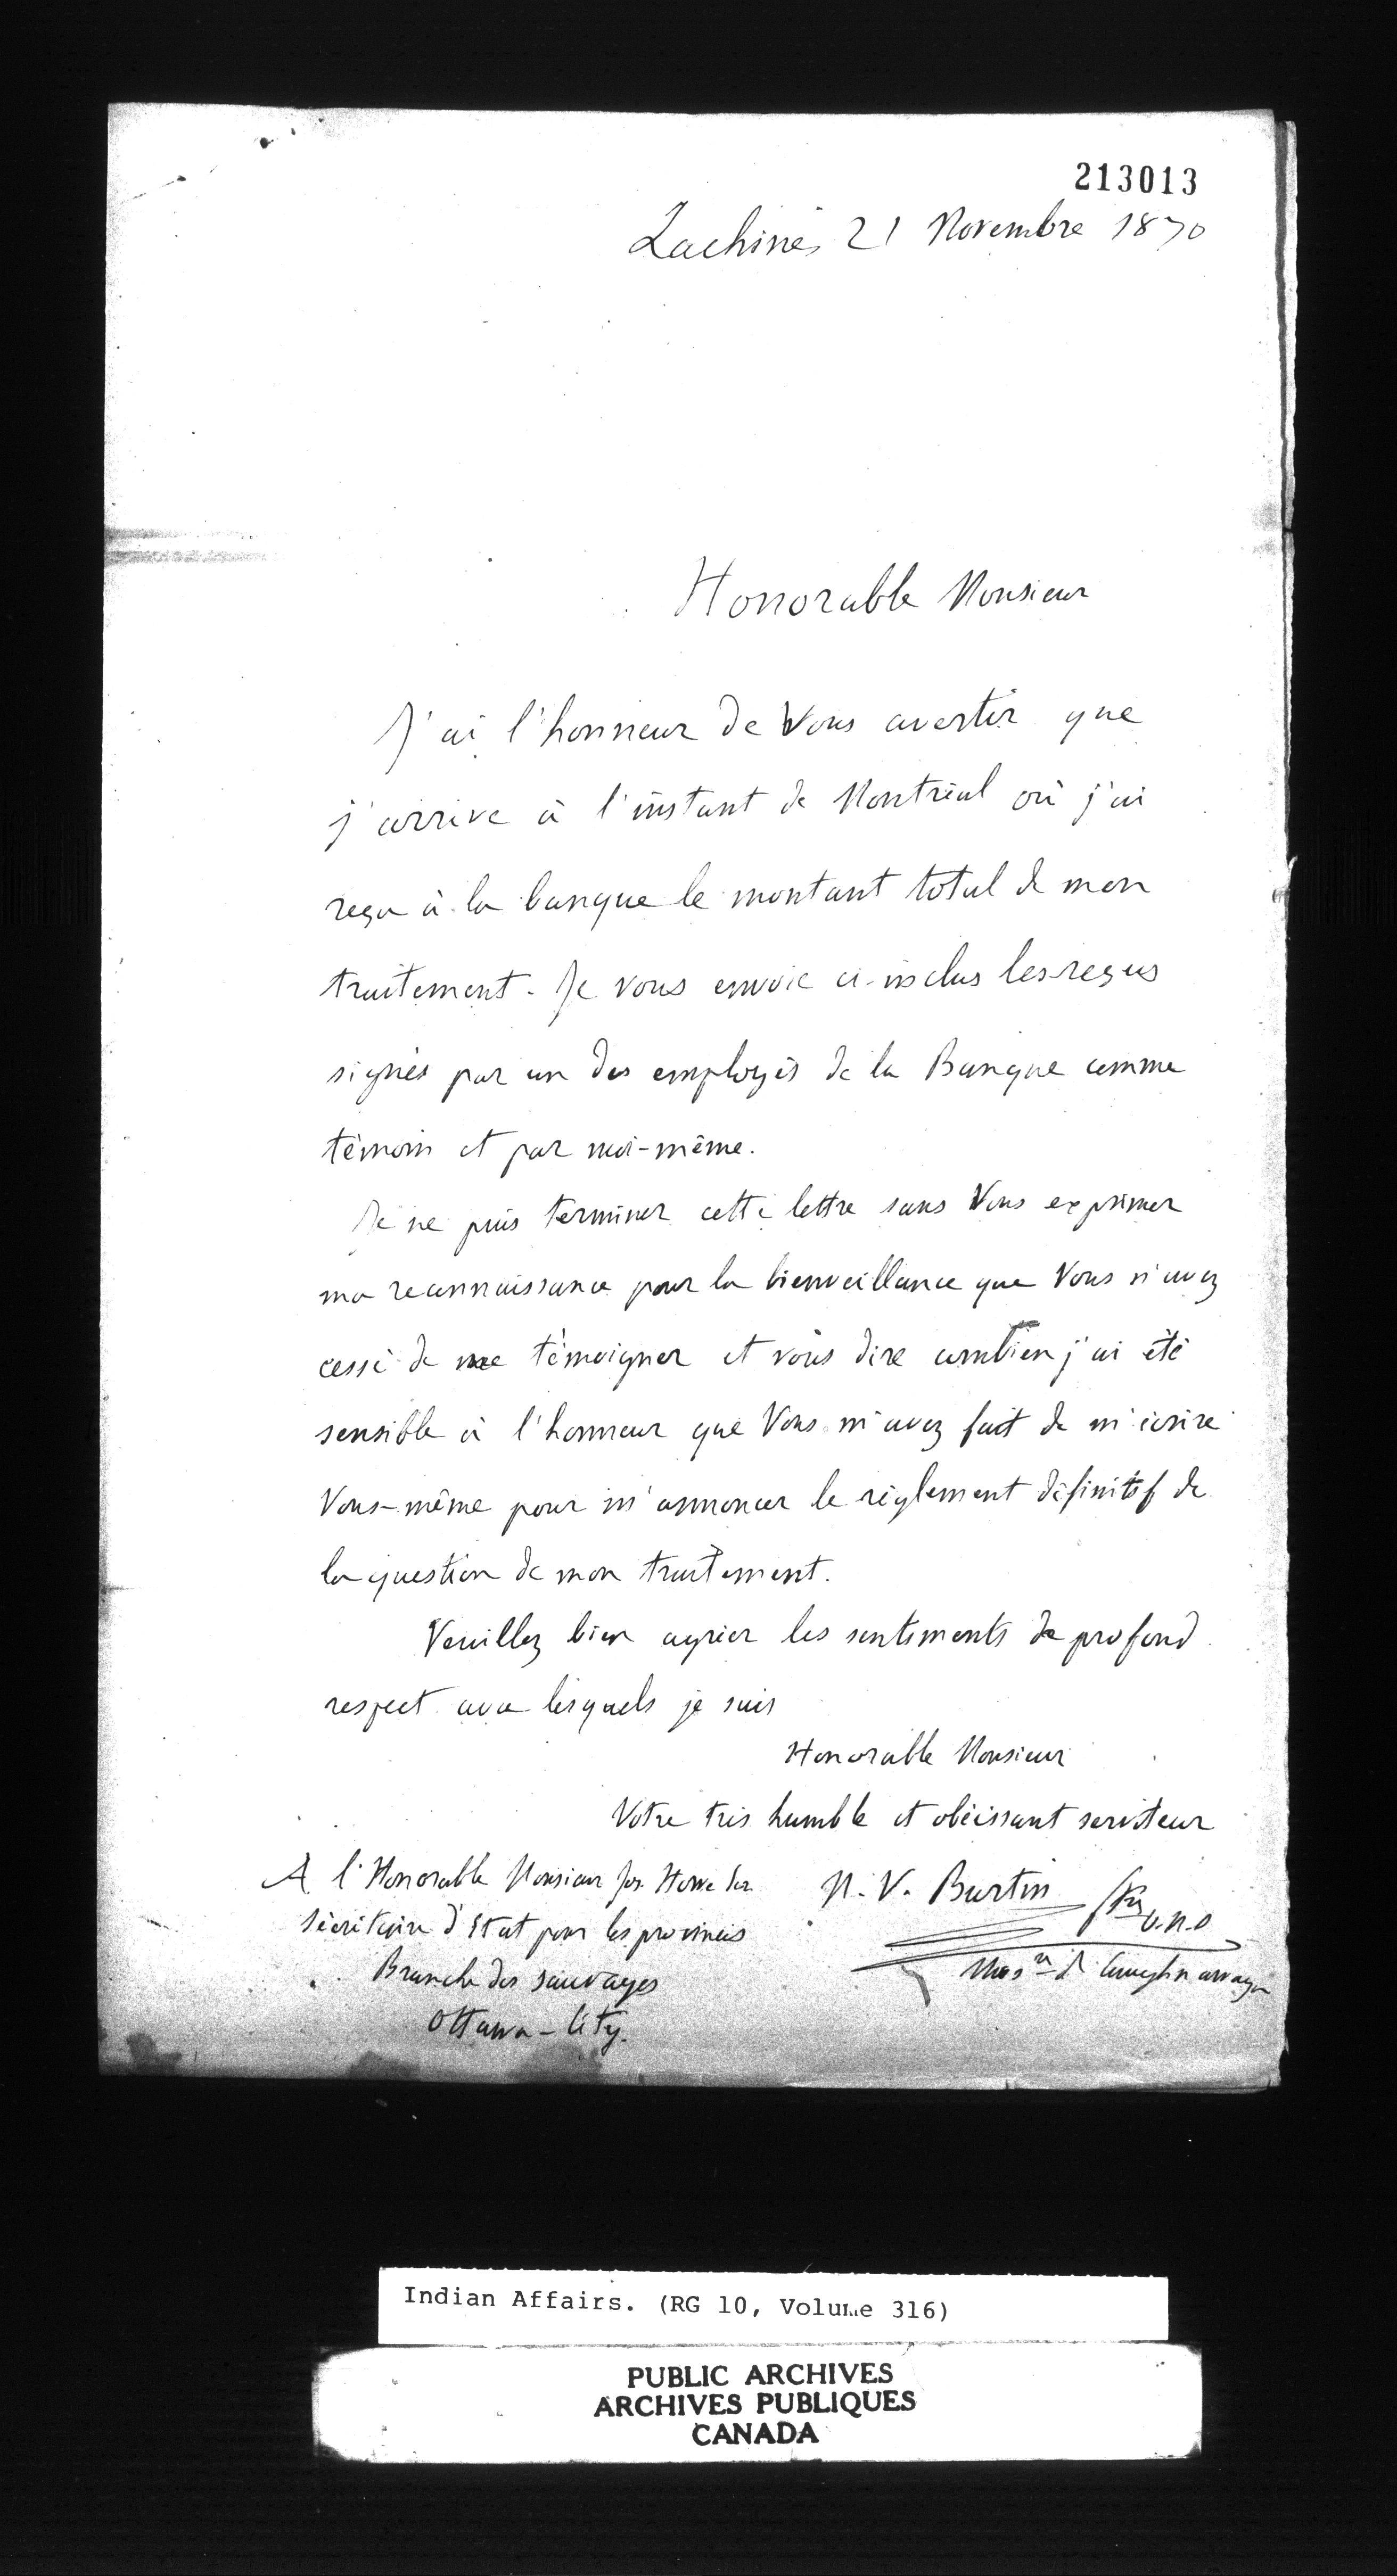 213013
Lachine, 21 Novembre 1870
Honorable Monsieur
J'ai l'honneur de Vous avertir que
j'arrive à l'instant de Montréal où j'ai
reçu à la banque le montant total de mon
traitement. Je vous envoie ci-inclus les reçus
signés par un des employés de la Banque comme
témoin et par moi-même.
Je ne puis terminer cette lettre sans Vous exprimer
ma reconnaissance pour la bienveillance que Vous n'avez
cessé de me témoigner et vous dire combien j'ai été
sensible à l'honneur que Vous m'avez fait de m'écrire
Vous-même pour m'annoncer le règlement définitif de
la question de mon traitement.
Veuillez bien agréer les sentiments de profond
respect avec lesquels je suis
Honorable Monsieur
Votre très humble et obéissant serviteur
A l'Honorable Monsieur Jos. Howe
Sécrétaire d'Etat pour les provinces
Branche des sauvages
Ottawa-City.
N. V. Burtin Ptre O.M.I
Miss re de Caughnawaga
Indian Affairs. (RG 10, Volume 316)
PUBLIC ARCHIVES
ARCHIVES PUBLIQUES
CANADA